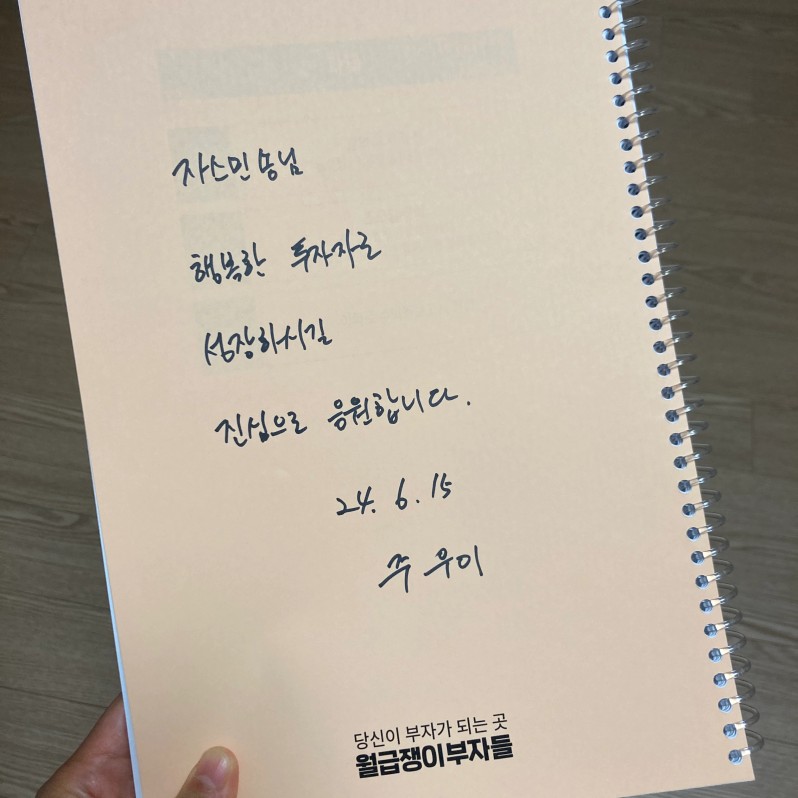 자스민송님
행복한 투자자로
성장하시길
진심으로 응원합니다.
24. 6. 15
주우이
당신이 부자가 되는 곳
월급쟁이부자들